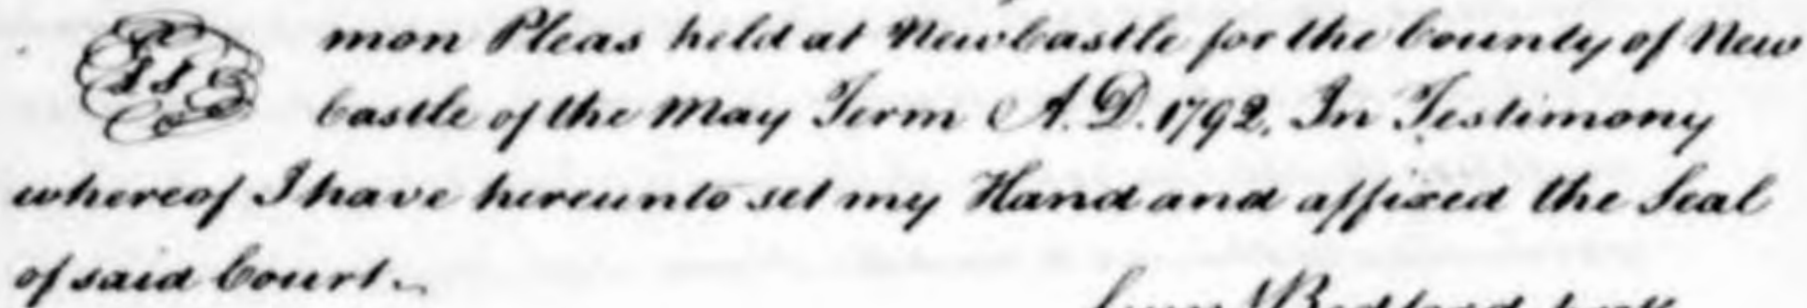 mon Pleas held at Newcastle for the County of New
Castle of the May Term A.D. 1792. In Testimony
whereof I have hereunto set my Hand and affixed the Seal
of said Court.
Bedford